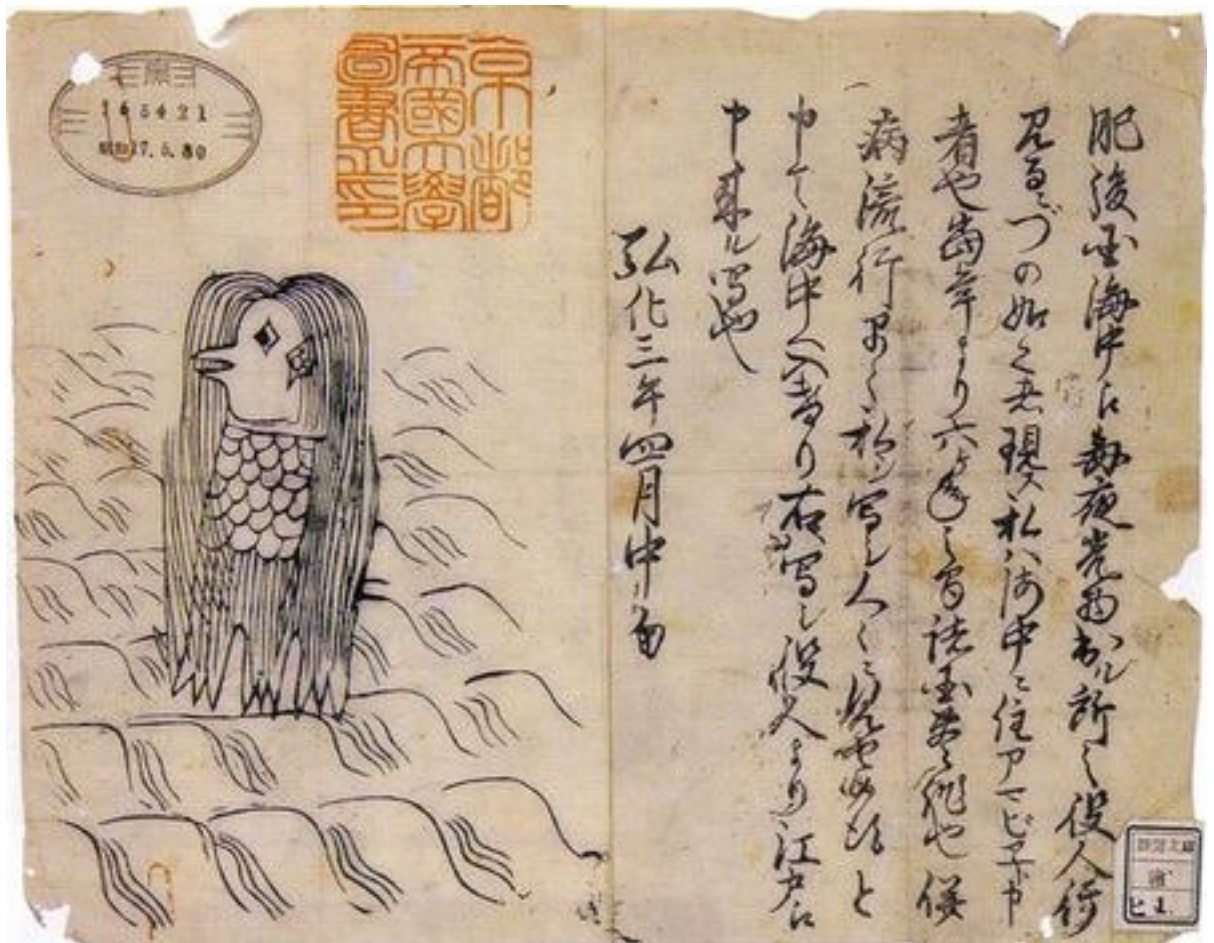 肥後国海中江毎夜光物出ル所之役人行
見るニづの如く者現ス私ハ海中ニ住アマビヱト申
者也當年より六ヶ年之間諸国豊作也併
病流行早々私ヲ写シ人々ニ見セ候得と
申て海中へ入けり右ハ写シ役人より江戸江
申来ル写也
弘化三年四月中旬
京都
帝國大學
圖書之印